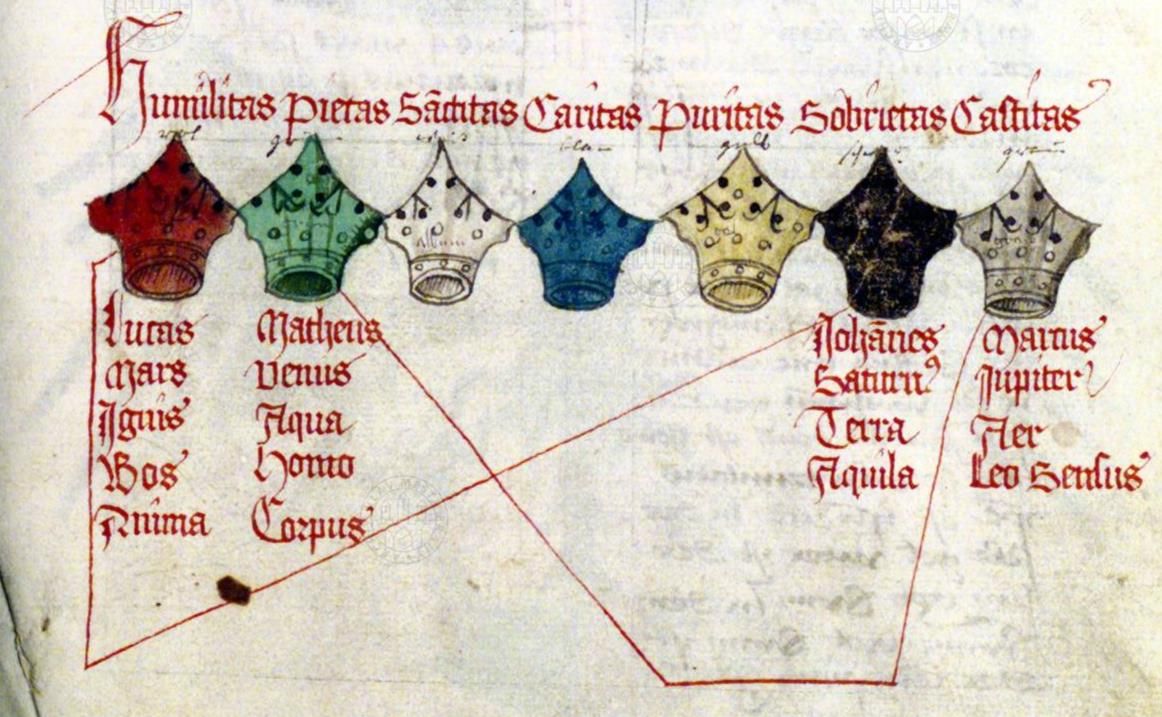 Humilitas Pietas Sãctitas Caritas Puritas Sobrietas Castitas
rot
album
Lucas Matheus Johãnes Marcus
Mars Venus Saturnꝰ Jupiter
Ignis Aqua Terra Aer
Bos Homo Aquila Leo Sensus
Anima Corpus